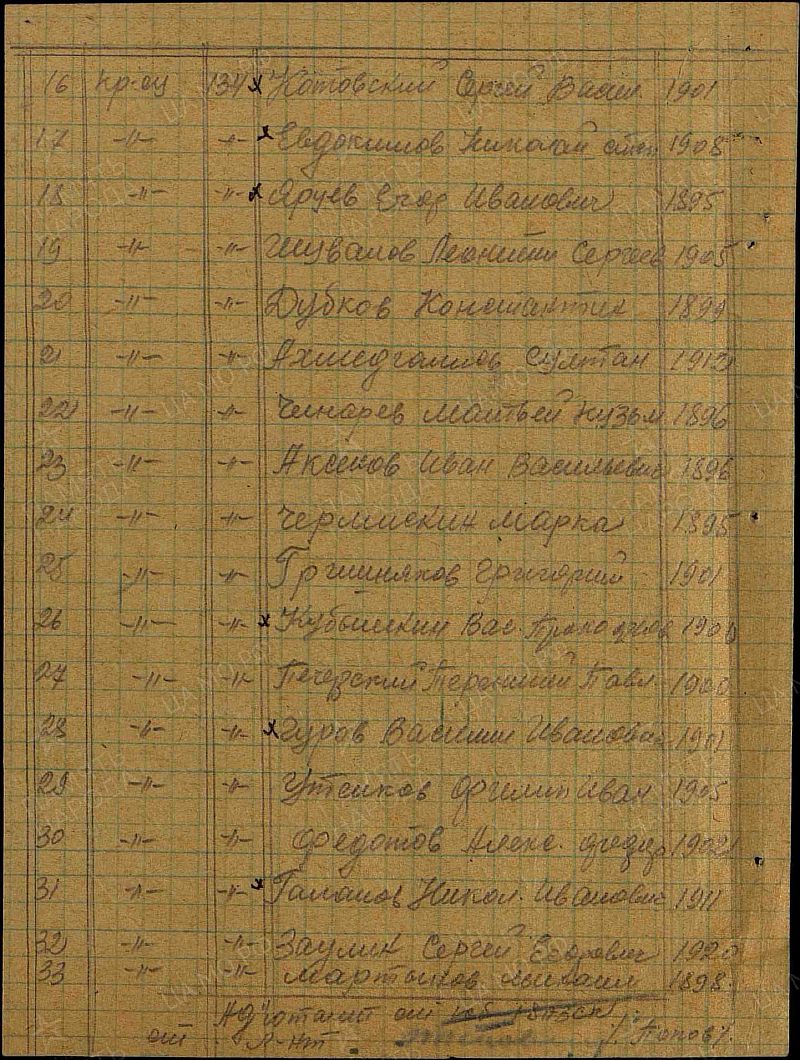 16 кр-ец 134 x Котовский Сергей Васил. 1901
17 -"- -"- x Евдокимов Николай степ 1908
18 -"- -"- x Яруев Егор Иванович 1895
19 -"- -"- Шувалов Леонтий Сергеев 1905
20 -"- -"- Дубков Константин 1899
21 -"- -"- Ахмедгалиов Султан 1912
22 -"- -"- Чинарев Матвей Кузьм 1896
23 -"- -"- Аксенов Иван Васильевич 1896
24 -"- -"- Чермискин Марка 1895
25 -"- -"- Гришняков Григорий 1901
26 -"- -"- x Кубышкин Вас. Прокофиев
27 -"- -"- Печерский Терентий Павл 1900
28 -"- -"- x Гуров Василий Иванович 1901
29 -"- -"- Иван 1905
30 -"- -"- Федотов Алекс. Федор 1902
31 -"- -"- x Галанов Никол. Иванович 1911
32 -"- -"- Заулин Сергей Егорович 1920
33 -"- -"- Мартынов Михаил 1898.
Адютант
ст л-нт /Попов/